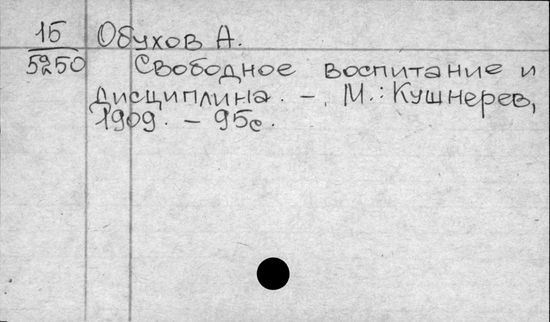 15 Обухов А.
5250 Свободное воспитание и
дисциплина. – М.: Кушнерев,
1909. – 95с.